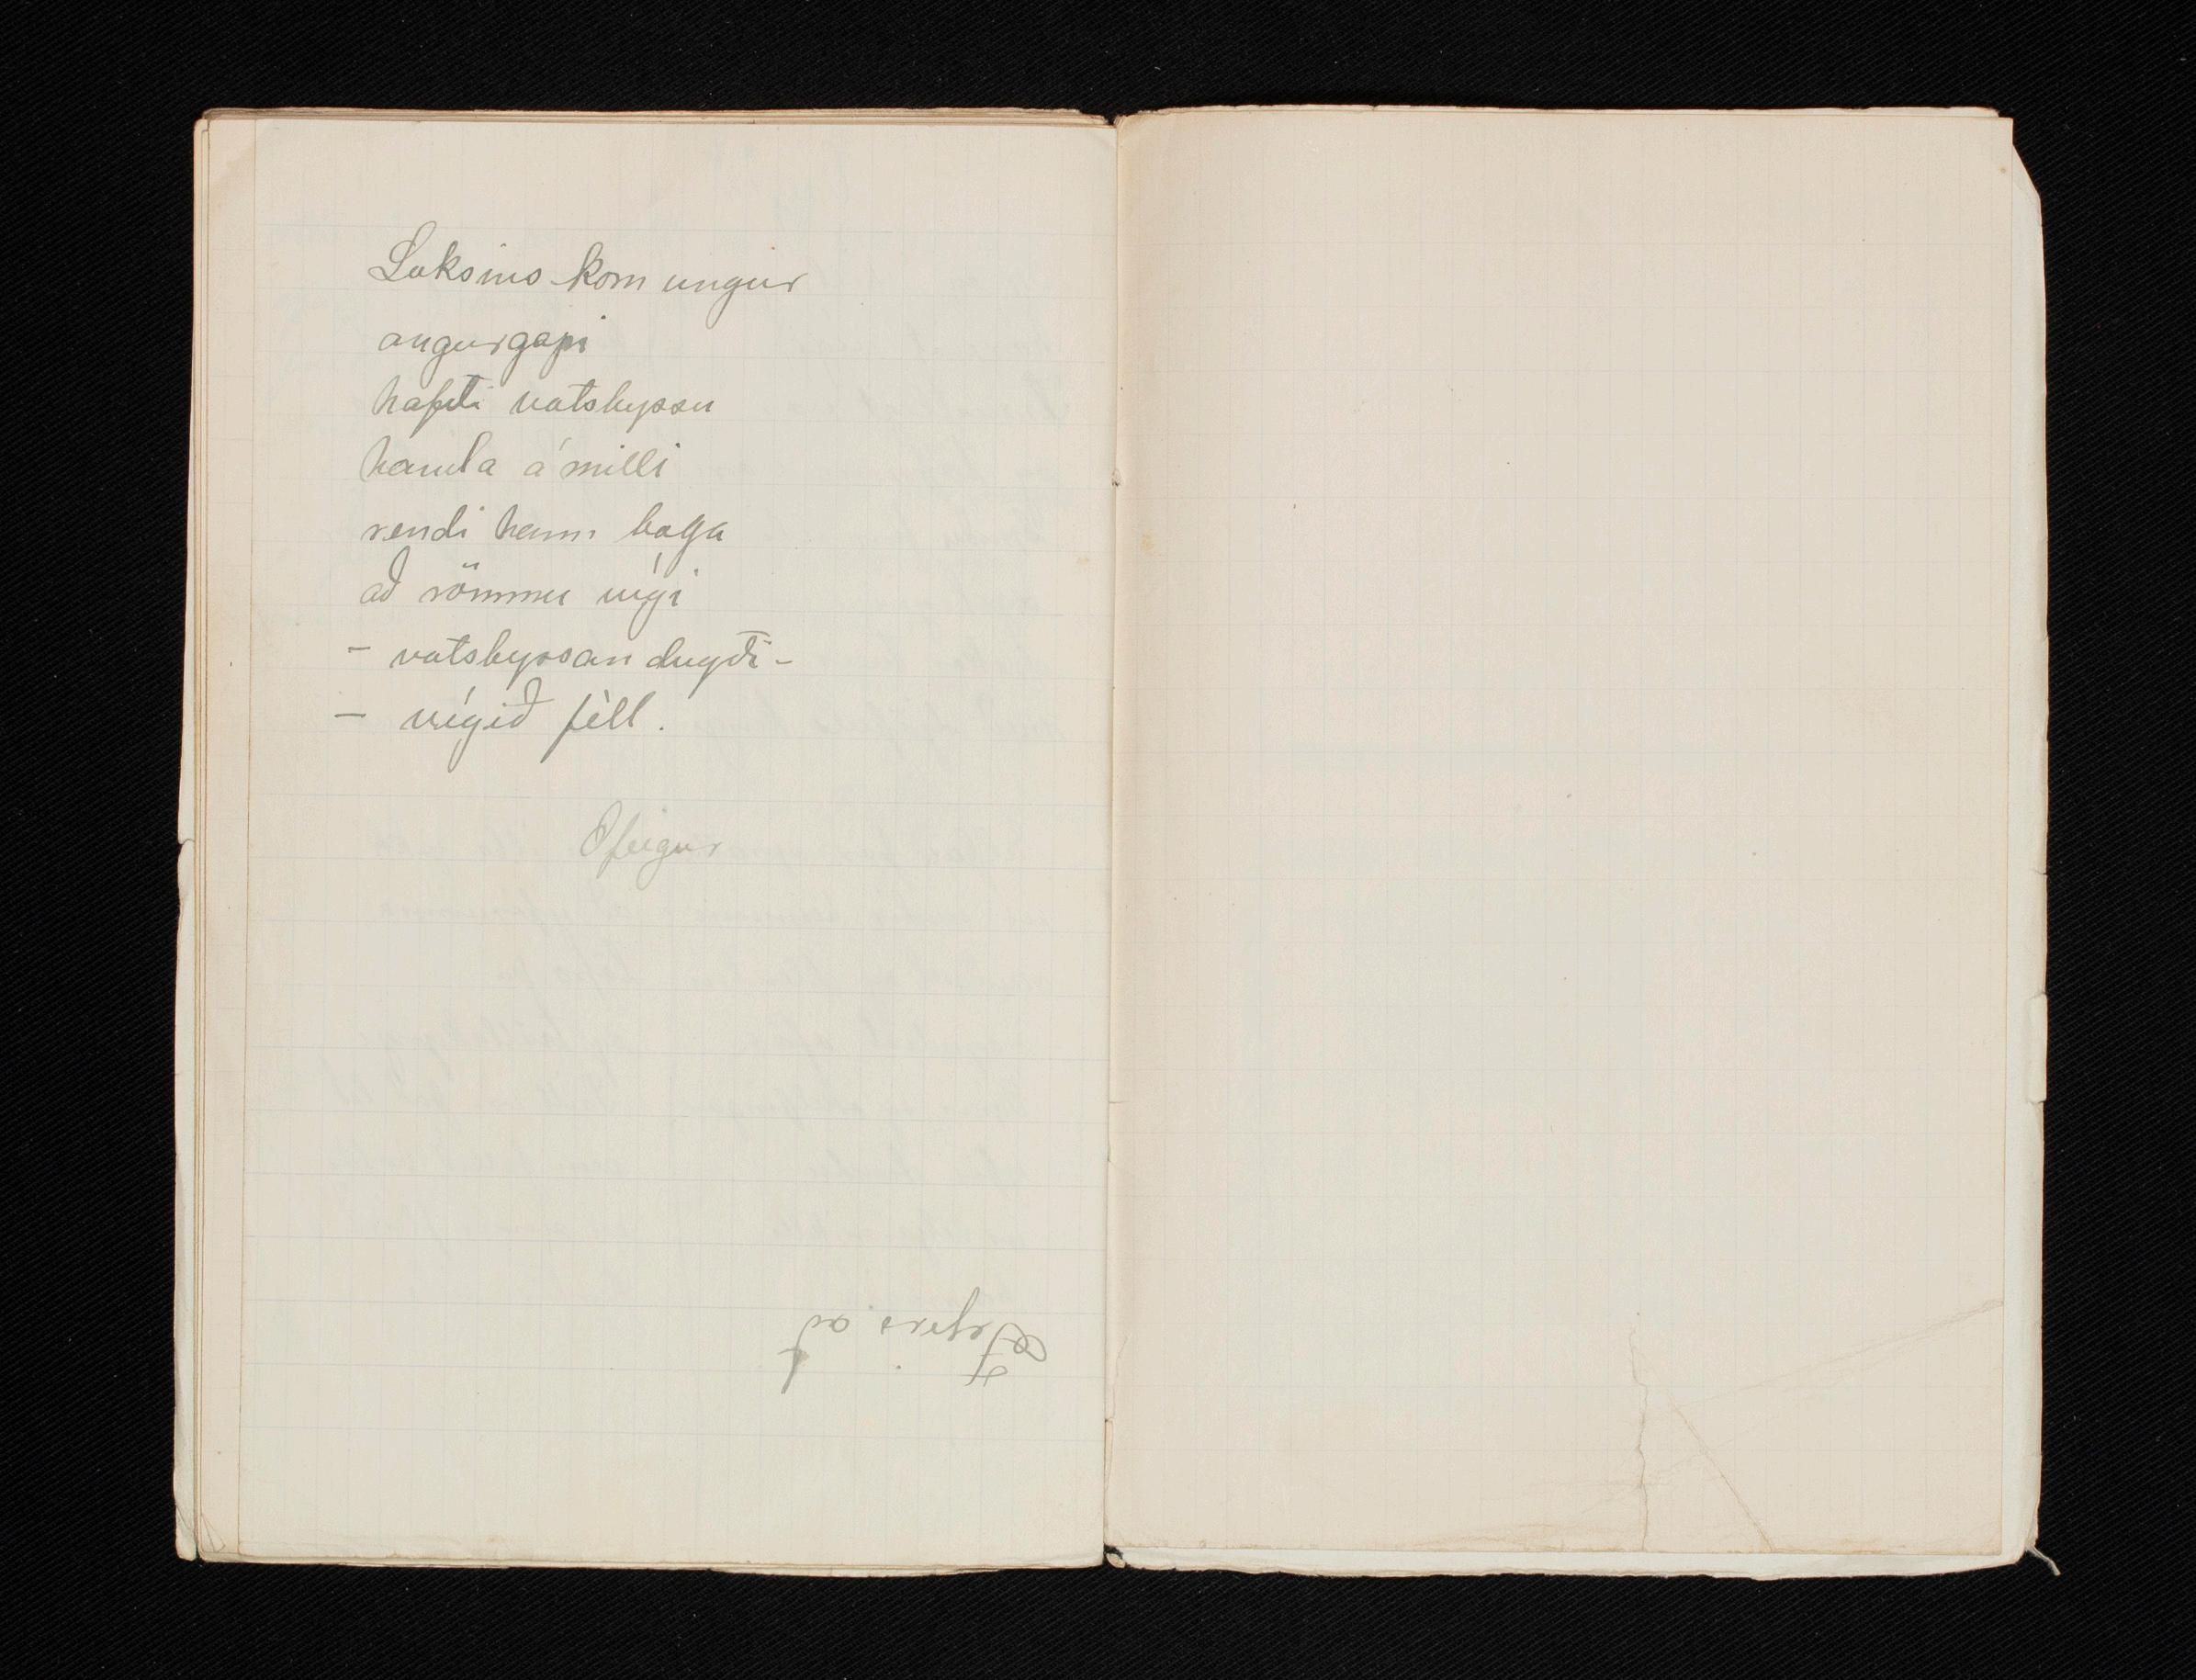 Loksins kom ungur
angurgapi
hafði vatsbyssu
handa á milli
rendi hann boga
að römmu vígi
- vatsbyssan dugði -
- vígið féll.
Ófeigur